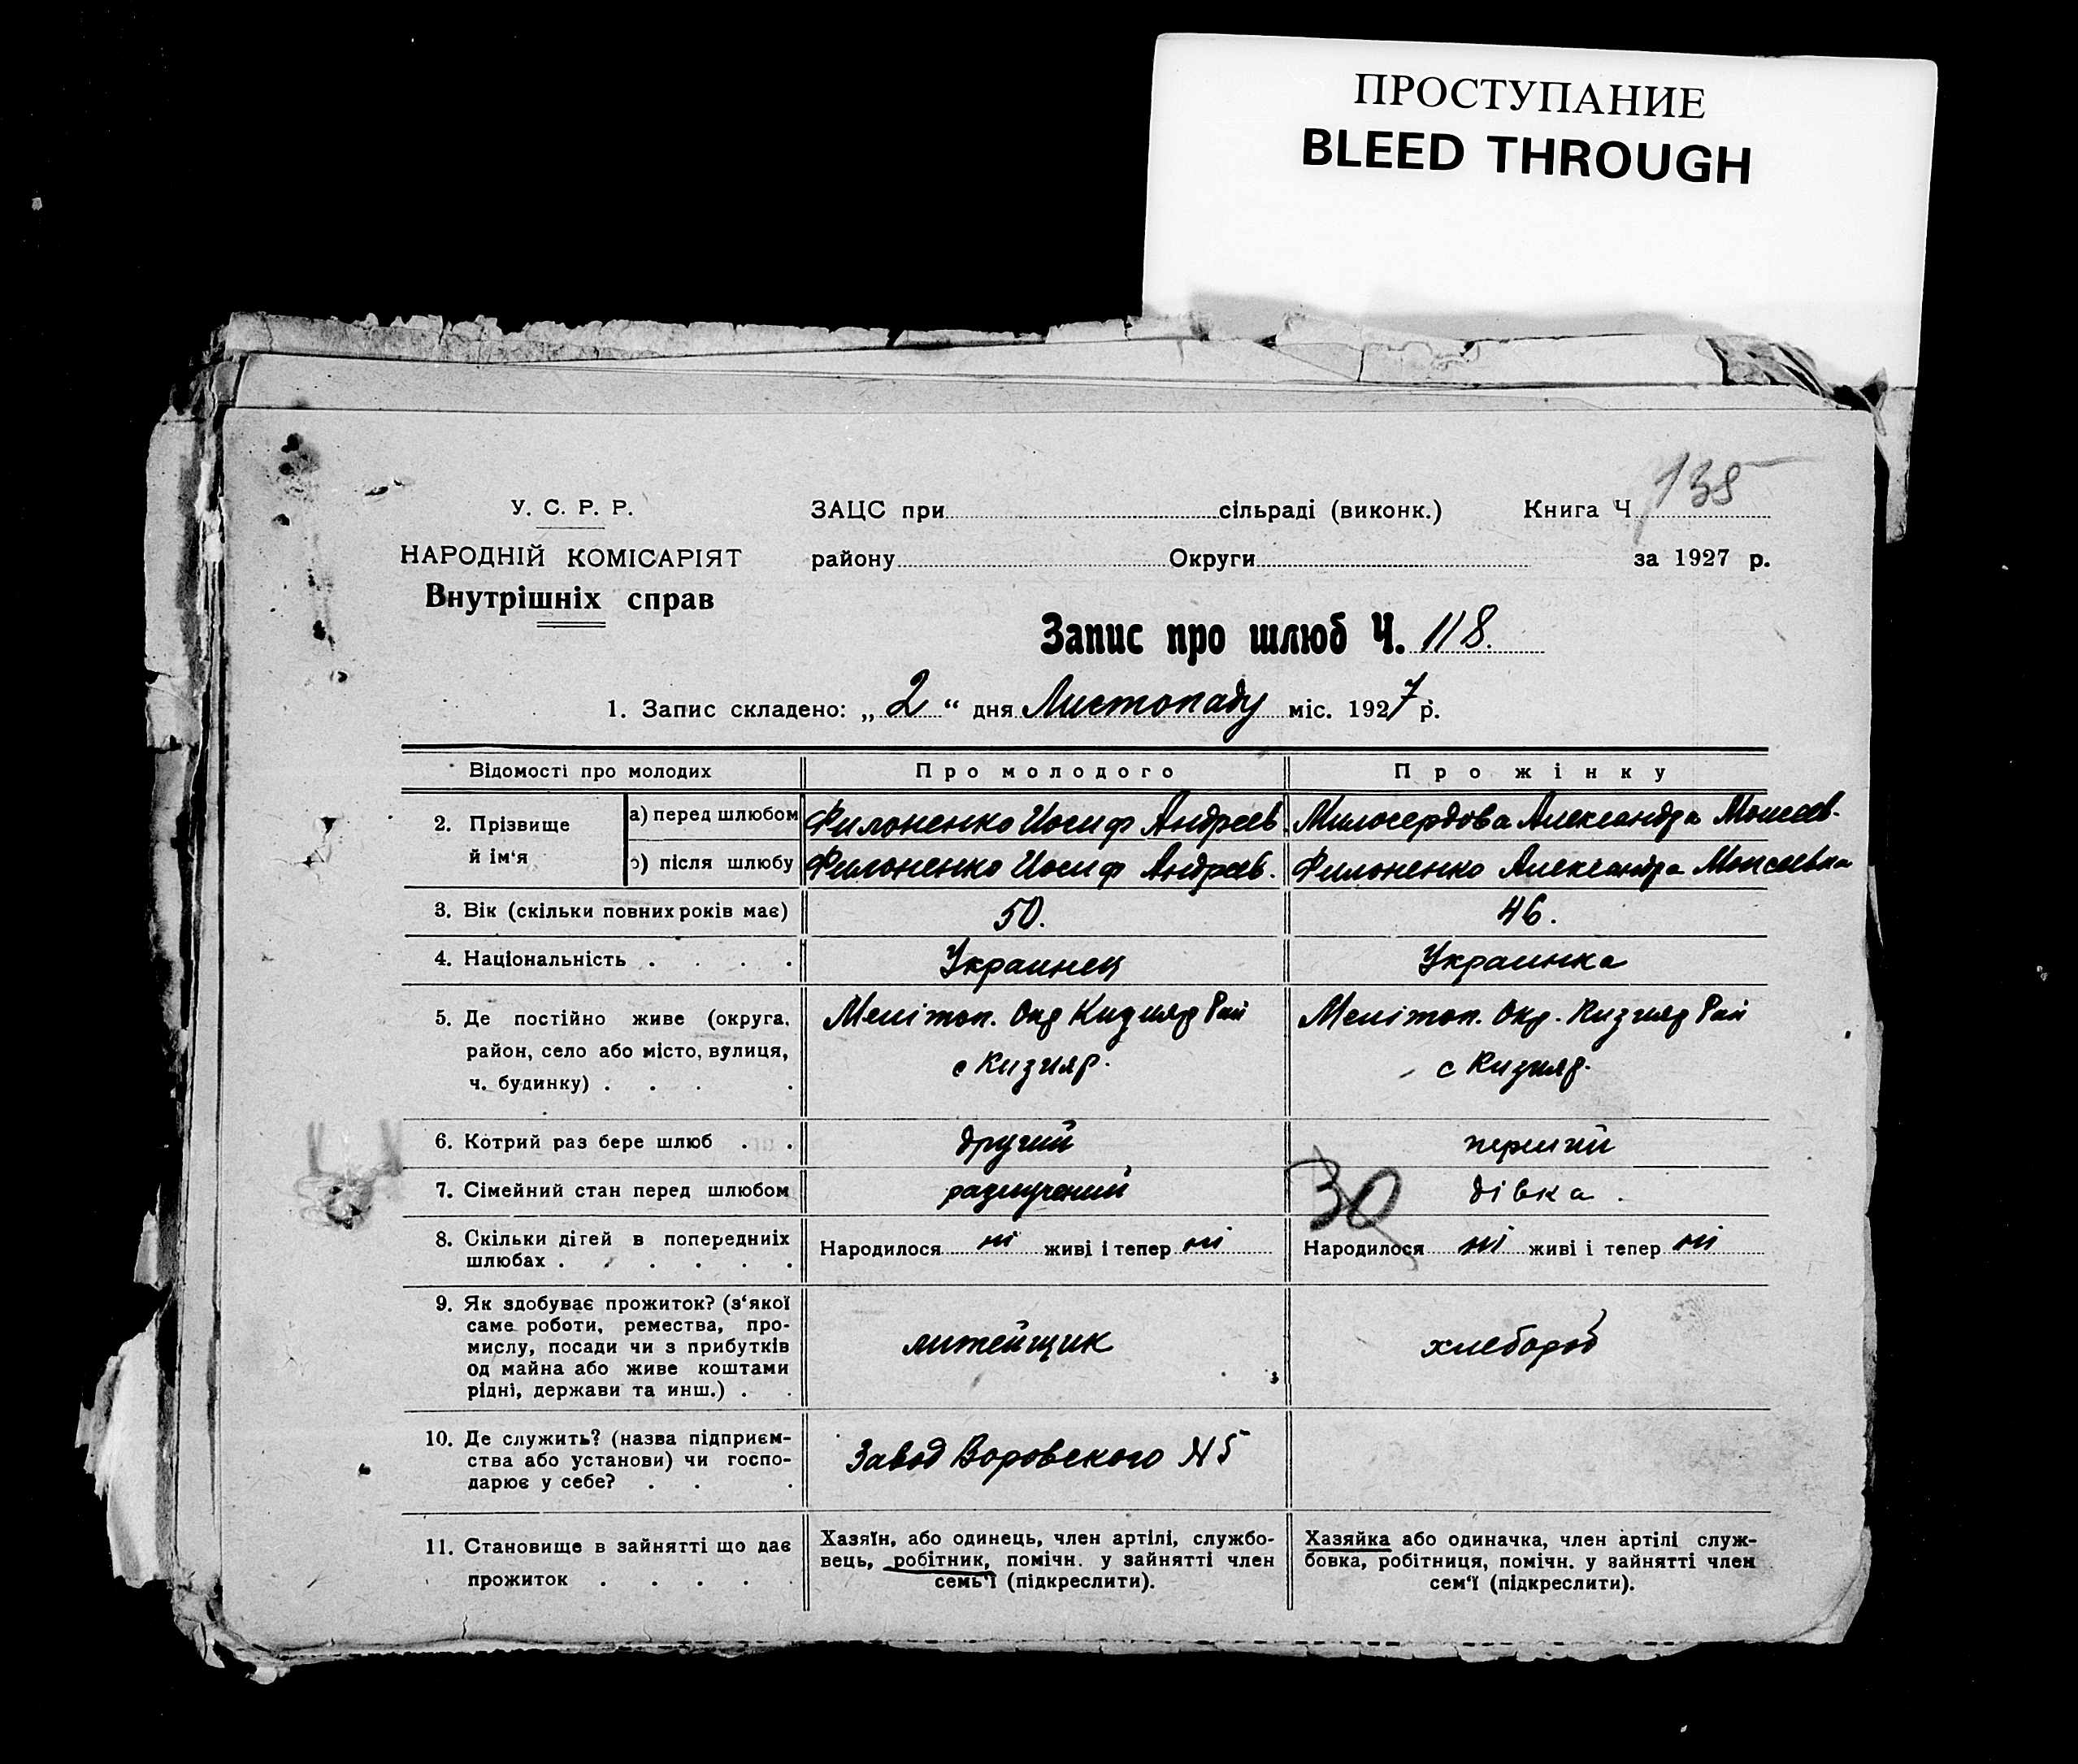 ПРОСТУПАНИЕ
BLEED THROUGH
У. С. Р. Р.
НАРОДНІЙ КОМІСАРІЯТ
Внутрішніх справ
ЗАЦС при сільраді (виконк.) Книга Ч 135
району Округи за 1927 р.
Запис про шлюб Ч. 118.
1. Запис складено: „ 2 “ дня Листопаду міс. 1927 р.
Відомості про молодих Про молодого Про жінку
2. Прізвище й ім‘я
а) перед шлюбом Филоненко Иосиф Андреев. Милосердова Александра Моисеев.
б) після шлюбу Филоненко Иосиф Андреев. Филоненко Александра Моисеевна
3. Вік (скільки повних років має) 50. 46.
4. Національність Украинец Украинка
5. Де постійно живе (округа, Меліт​оп. Окр Кизияр Рай Мелітоп. Окр. Кизияр Рай
район, село або місто, вулиця, с Кизияр. с Кизияр.
ч. будинку)
6. Котрий раз бере шлюб другий перший
7. Сімейний стан перед шлюбом разлучений 30 дівка.
8. Скільки дітей в попередніх Народилося ні живі і тепер ні Народилося ні живі і тепер ні
шлюбах
9. Як здобуває прожиток? (з‘якої
саме роботи, ремества, про-
мислу, посади чи з прибутків литейщик хлебороб
од майна або живе коштами
рідні, держави та инш.)
10. Де служить? (назва підприєм-
ства або установи) чи госпо- Завод Воровского N 5
дарює у себе?
11. Становище в зайнятті що дає
прожиток
Хазяїн, або одинець, член артілі, службо-
вець, робітник, помічн. у зайнятті член
семь‘ї (підкреслити).
Хазяйка або одиначка, член артілі служ-
бовка, робітниця, помічн. у зайнятті член
сем‘ї (підкреслити).